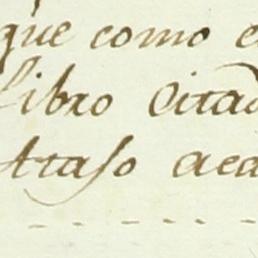 que como e
Libro Citad
Ataso aca